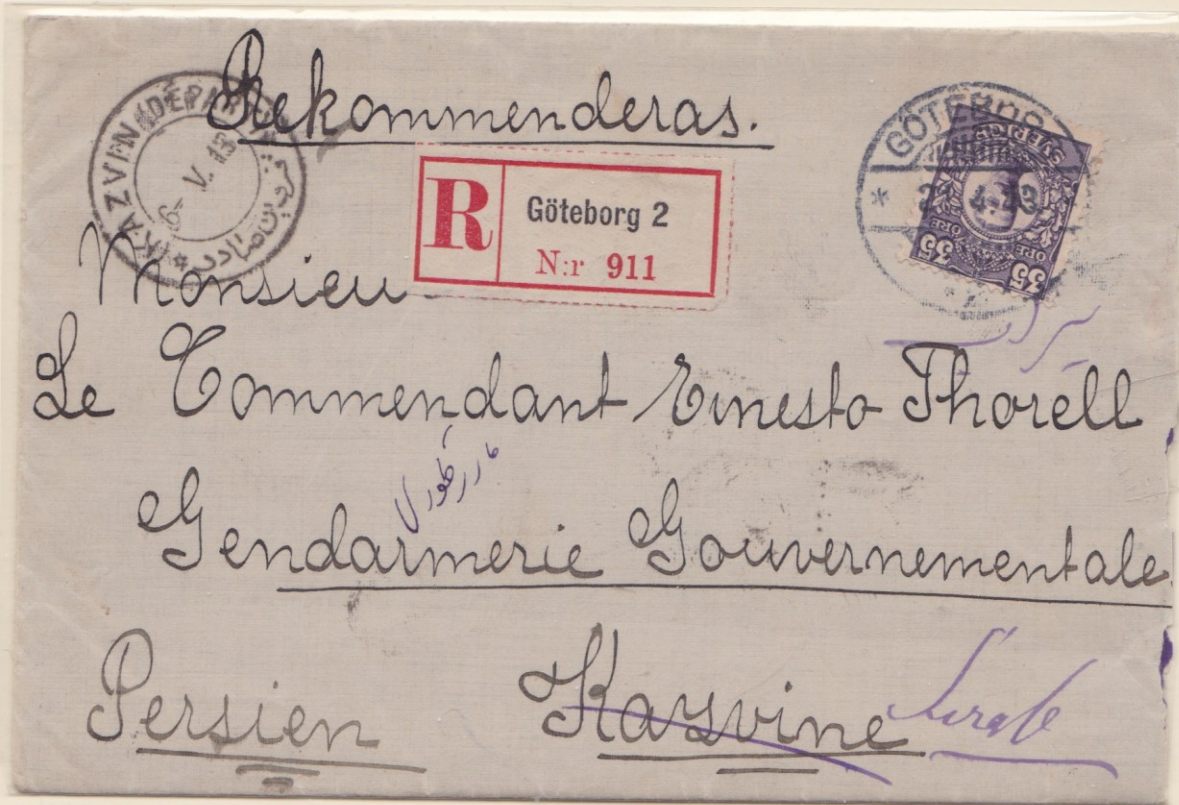 Rekommenderas.
KAZVIN (DÉPART)
6 - V. 13
R
Göteborg 2
N:r 911
GÖTEBORG
2 4.13
SVERIGE
35 ÖRE ÖRE 35
Monsieur
Le Commendant Ernesto Thorell
Gendarmerie Gouvernementale
Persien Kazvine